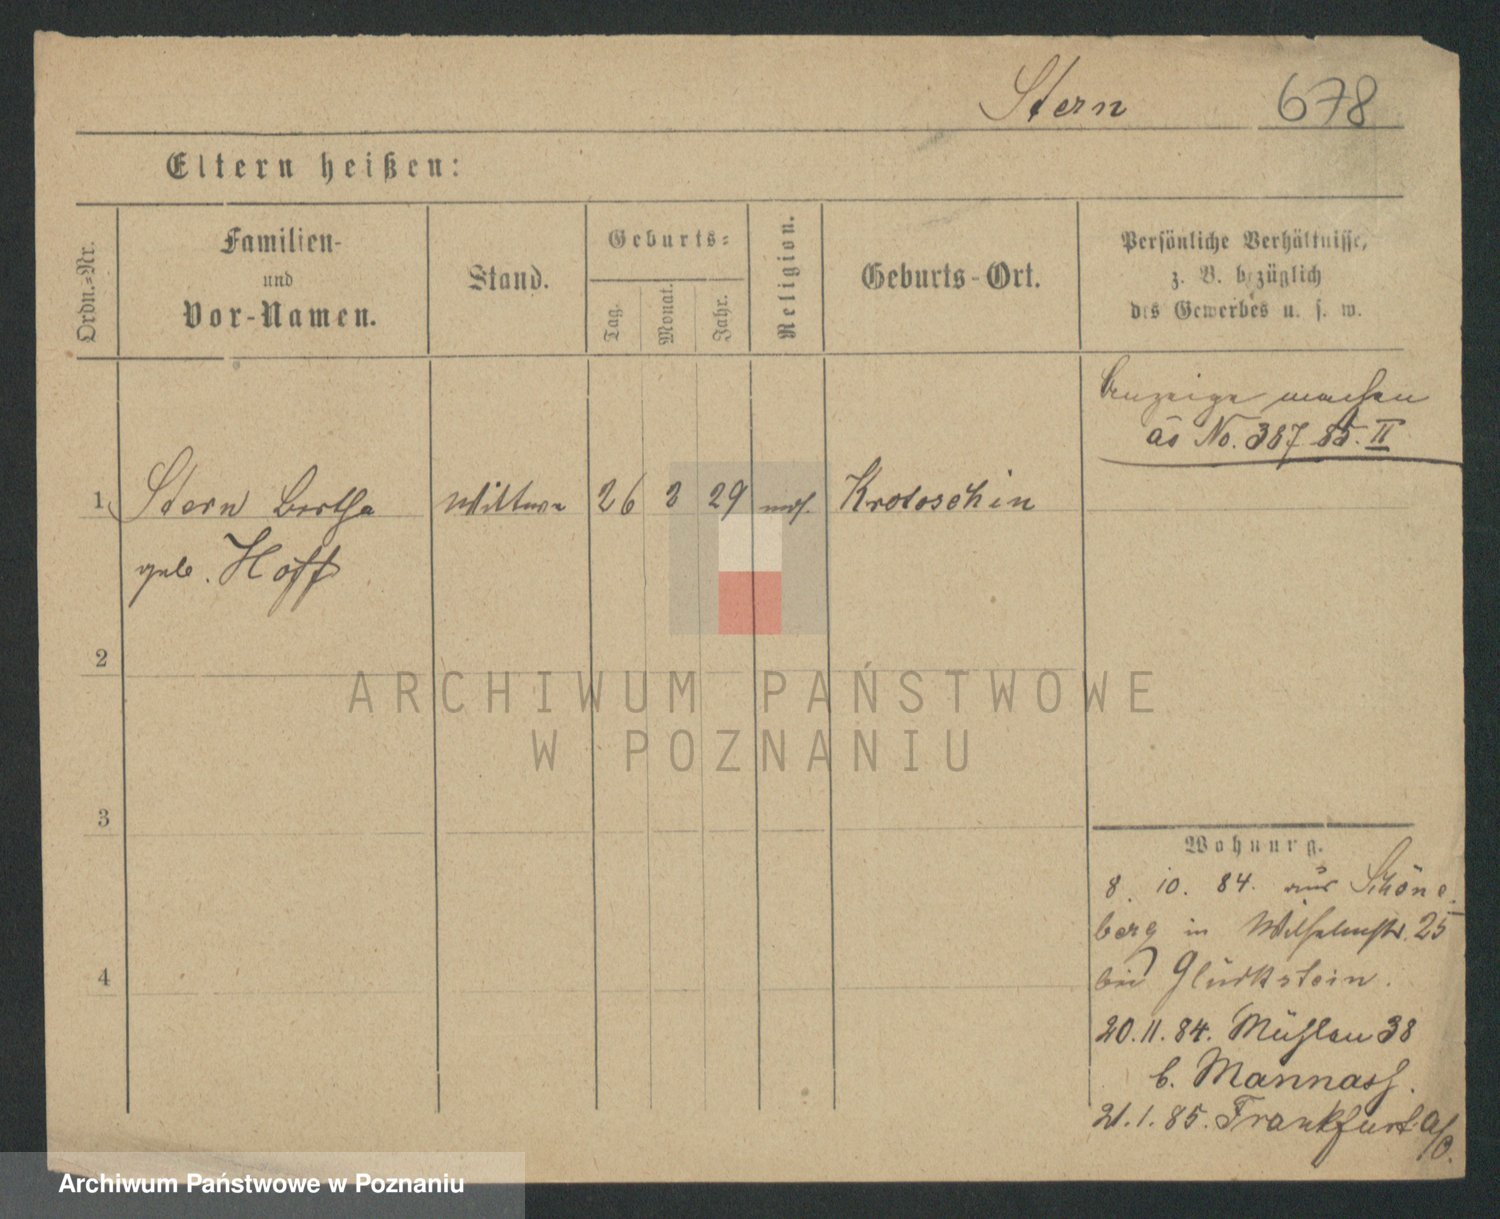 Stern 678
Eltern heißen:
Ordn.-Nr.
Familien-
und
Vor-Namen.
Stand.
Geburts-
Tag.
Monat.
Jahr.
Religion.
Geburts-Ort.
Persönliche Verhältnisse,
z. B. bezüglich
des Gewerbes u. s. w.
machen
No. 387 85. II
1 Stern Bertha Wittwe 26 2 29 mos. Krotoschin
geb. Hoff
2
3
4
Wohnung.
8. 10. 84. aus Schöne-
berg in Wilhelmstr. 25
bei Glückstein.
20. 11. 84. Mühlen 38
b. Mannass.
21. 1. 85. Frankfurt a/O.
ARCHIWUM PAŃSTWOWE
W POZNANIU
Archiwum Państwowe w Poznaniu